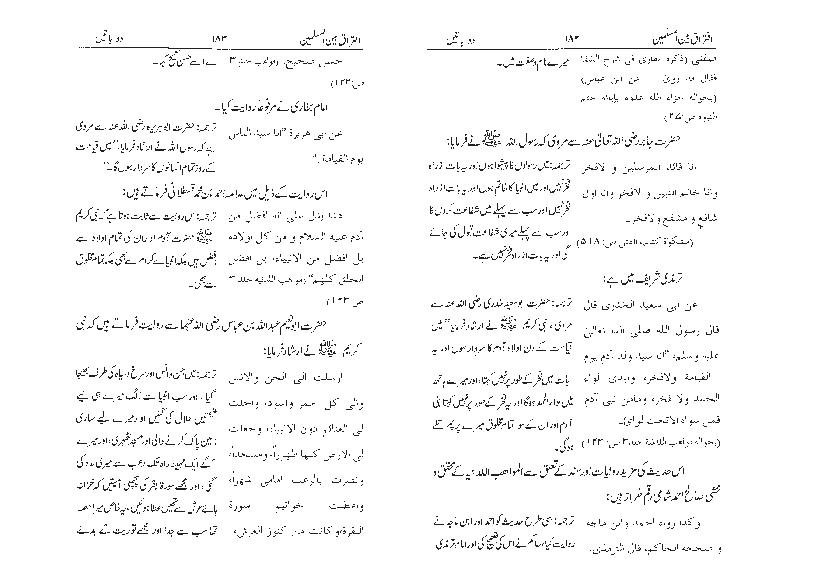 افتراق بین المسلمین ۱۸۲ دو باتیں
المصطفی (ذکرہ غفاری فی شرح الشفا
فقال قد روی عن ابن عباس)
(بحوالہ جزاء اللہ عدوہ بابائہ ختم
النبوہ ص: ۲۸)
میرے نام و صفت میں۔
حضرت جابر رضی اللہ تعالیٰ عنہ سے مروی کہ رسول اللہ ﷺ نے فرمایا:
انا قائد المرسلین ولا فخر
وانا خاتم النبیین ولا فخر وانا اول
شافع و مشفع ولا فخر۔
(مشکوٰۃ کتاب الفتن ص: ۵۱۸)
ترجمہ: میں رسولوں کا پیشوا ہوں اور یہ بات ازراہ
فخر نہیں اور میں انبیا کا خاتم ہوں اور یہ بات ازراہ
فخر نہیں اور سب سے پہلے میں شفاعت کروں گا
اور سب سے پہلے میری شفاعت قبول کی جائے
گی اور یہ بات ازراہ فخر نہیں ہے۔
ترمذی شریف میں ہے:
عن ابی سعید الخدری قال
قال رسول اللہ صلی اللہ تعالیٰ
علیہ وسلم، "انا سید ولد آدم یوم
القیامۃ ولا فخر، وبیدی لواء
الحمد ولا فخر، وما من نبی آدم
فمن سواہ الا تحت لوائی"
(بحوالہ مواہب اللدنیہ جلد ۳ ص: ۱۴۳)
ترجمہ: حضرت ابوسعید خدری رضی اللہ عنہ سے
مروی، نبی کریم ﷺ نے ارشاد فرمایا "میں
قیامت کے دن اولاد آدم کا سردار ہوں اور یہ
بات میں فخر کے طور پر نہیں کہتا، اور میرے ہاتھ
میں لواء الحمد ہوگا اور یہ فخر کے طور پر نہیں کہتا نبی
آدم اور ان کے سوا تمام مخلوق میرے پرچم تلے
ہوگی۔
اس حدیث کی مزید روایات اور سند کے تعلق سے المواہب اللدنیہ کے محقق و
محشی صالح احمد شامی رقم طراز ہیں:
وکذا رواہ احمد وابن ماجہ
و صححہ الحاکم، قال الترمذی:
ترجمہ: اسی طرح حدیث کو احمد اور ابن ماجہ نے
روایت کیا، حاکم نے اس کی تصحیح کی اور امام ترمذی
افتراق بین المسلمین ۱۸۳ دو باتیں
حسن صحیح۔ (مواہب جلد ۳
ص: ۱۴۳)
نے اسے حسن صحیح کہا۔
امام بخاری نے مرفوعاً روایت کیا۔
عن ابی ہریرۃ "انا سید الناس
یوم القیامۃ۔"
ترجمہ: حضرت ابوہریرہ رضی اللہ عنہ سے مروی
ہے کہ رسول اللہ نے ارشاد فرمایا، "میں قیامت
کے روز تمام انسانوں کا سردار ہوں گا۔"
اس روایت کے ذیل میں علامہ احمد بن محمد قسطلانی فرماتے ہیں:
ھذا یدل علی انہ افضل من
آدم علیہ السلام و من کل اولادہ
بل افضل من الانبیاء، بل افضل
الخلق کلہم" (مواہب اللدنیہ جلد ۳
ص ۱۴۳)
ترجمہ: اس روایت سے ثابت ہوتا ہے کہ نبی کریم
ﷺ حضرت آدم اور ان کی تمام اولاد سے
افضل ہیں بلکہ انبیائے کرام سے بھی بلکہ تمام مخلوق
سے بھی۔
حضرت ابونعیم عبداللہ بن عباس رضی اللہ عنہما سے روایت فرماتے ہیں کہ نبی
کریم ﷺ نے ارشاد فرمایا:
ارسلت الی الجن والانس
والی کل احمر واسود، واحلت
لی الغنائم دون الانبیاء، وجعلت
لی الارض کلہا طہوراً، ومسجداً،
ونصرت بالرعب امامی شہراً،
واعطیت خواتیم سورۃ
البقرۃ وکانت من کنوز العرش،
ترجمہ: میں جن و انس اور سرخ و سیاہ کی طرف بھیجا
گیا، اور سب انبیا سے الگ میرے ہی لیے
غنیمتیں حلال کی گئیں اور میرے لیے ساری
زمین پاک کرنے والی اور مسجد ٹھہری، اور میرے
آگے ایک مہینہ راہ تک رعب سے میری مدد کی
گئی، اور مجھے سورۃ بقر کی پچھلی آیتیں کہ خزانہ
ہائے عرش سے تھیں عطا ہوئیں، یہ خاص میرا حصہ
تھا سب سے جدا اور مجھے توریت کے بدلے